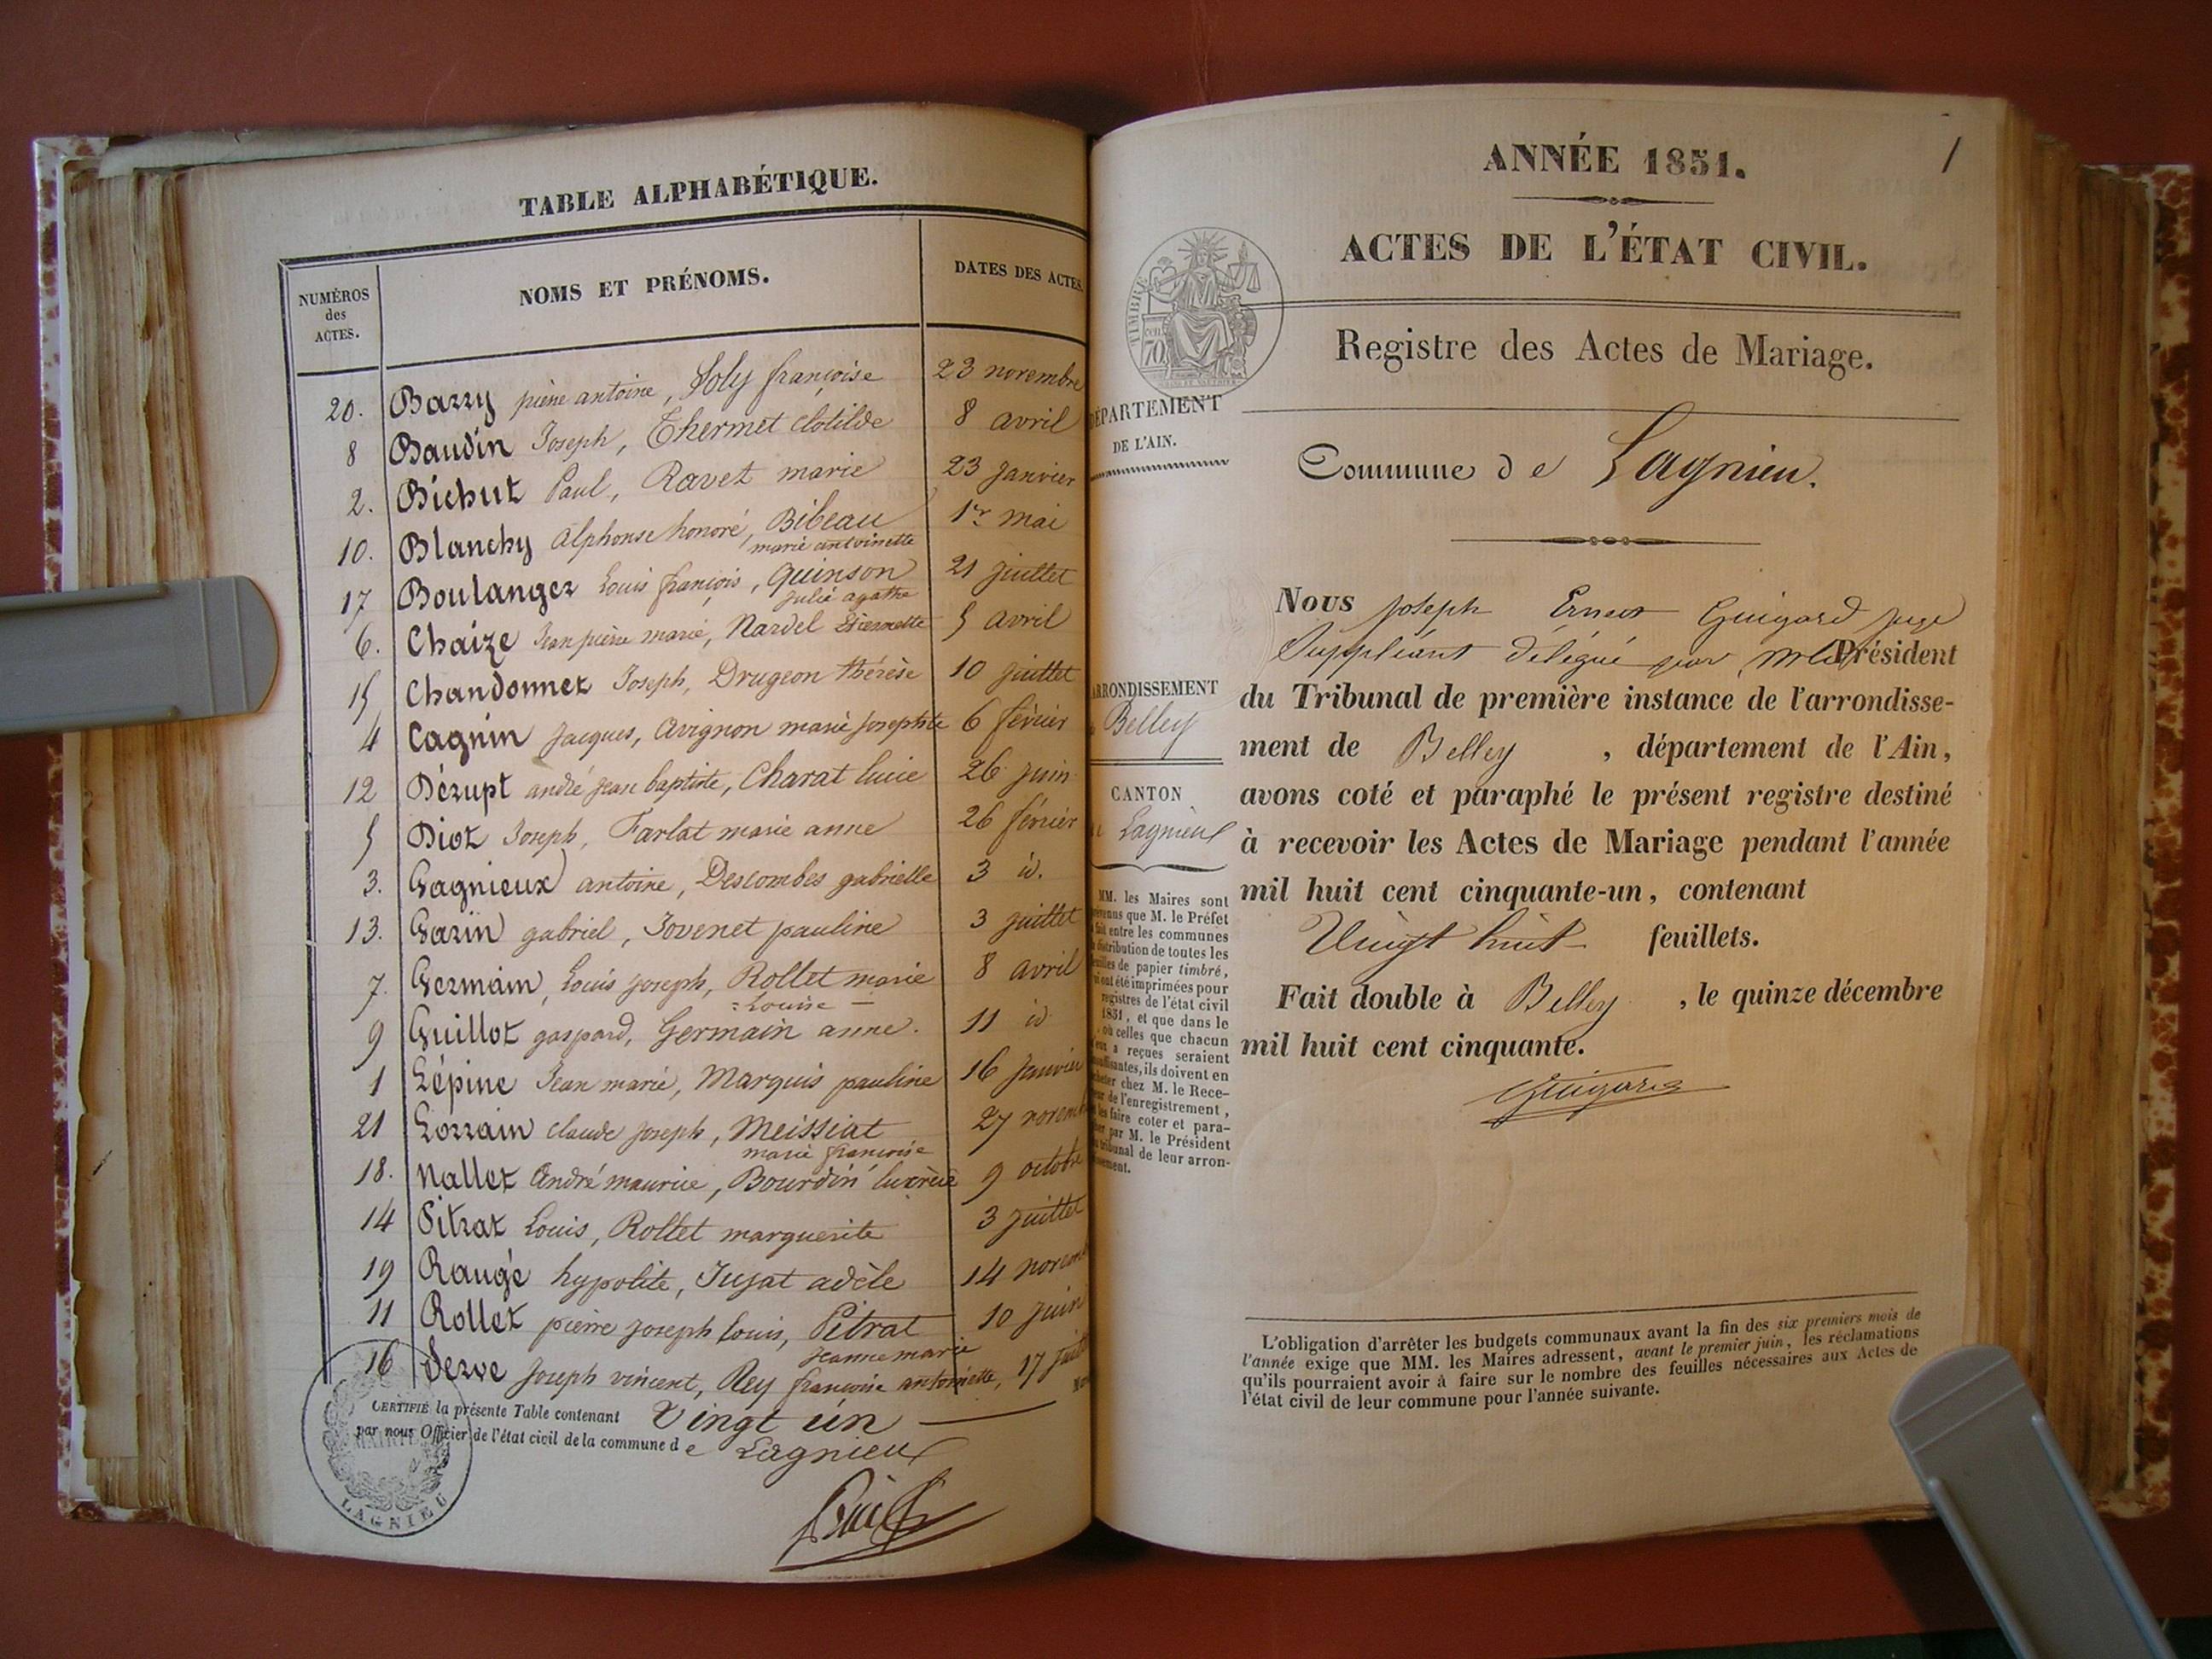 TABLE ALPHABÉTIQUE.
NUMÉROS des ACTES.
NOMS ET PRÉNOMS.
DATES DES ACTES.
20. Barry pierre antoine, Joly françoise 23 novembre
8 Baudin Joseph, Thermet clotilde 8 avril
2. Bichut Paul, Ravet marie 23 janvier
10. Blanchy alphonse honoré, Bibeau marie antoinette 1er mai
17 Boulanger Louis françois, Quinson julie agathe 21 juillet
6. Chaize Jean pierre marie, Nardel Etiennette 5 avril
15 Chandonnet Joseph, Drugeon thérèse 10 juillet
4 Cagnin Jacques, Avignon marie josephte 6 février
12 Dérupt andré jean baptiste, Charat lucie 26 juin
5 Diot Joseph, Farlat marie anne 26 février
3. Gagnieux antoine, Descombes gabrielle 3 id.
13. Garin gabriel, Jovenet pauline 3 juillet
7. Germain, Louis joseph, Rollet marie Louise 8 avril
9 Guillot gaspard, Germain anne. 11 id
1 Lépine Jean marie, Marquis pauline 16 janvier
21 Lorrain claude joseph, Meissiat marie françoise 27 novem
18. Nallet André maurice, Bourdin lucrèce 9 octobre
14 Pitrat Louis, Rollet marguerite 3 juillet
19 Raugé hypolite, Jujat adèle 14 novem
11 Rollet pierre joseph louis, Pitrat jeanne marie 10 juin
16 Serve Joseph vincent, Rey françoise antoinette, 17 juillet
CERTIFIÉ la présente Table contenant Vingt un
par nous Officier de l'état civil de la commune de Lagnieu
MAIRIE
LAGNIEU
1
ANNÉE 1851.
ACTES DE L'ÉTAT CIVIL.
TIMBRE
70
Registre des Actes de Mariage.
DÉPARTEMENT
DE L'AIN.
Commune de Lagnieu.
Nous Joseph Ernest Guigard juge
Suppléant délégué par Mr le Président
du Tribunal de première instance de l'arrondisse-
ment de Belley, département de l'Ain,
avons coté et paraphé le présent registre destiné
à recevoir les Actes de Mariage pendant l'année
mil huit cent cinquante-un, contenant
Vingt huit feuillets.
Fait double à Belley, le quinze décembre
mil huit cent cinquante.
Guigard
ARRONDISSEMENT
Belley
CANTON
de Lagnieu
MM. les Maires sont
prévenus que M. le Préfet
a fait entre les communes
la distribution de toutes les
feuilles de papier timbré,
qui ont été imprimées pour
registres de l'état civil
1851, et que dans le
où celles que chacun
d'eux a reçues seraient
insuffisantes, ils doivent en
acheter chez M. le Rece-
veur de l'enregistrement,
les faire coter et para-
pher par M. le Président
du tribunal de leur arron-
dissement.
L'obligation d'arrêter les budgets communaux avant la fin des six premiers mois de
l'année exige que MM. les Maires adressent, avant le premier juin, les réclamations
qu'ils pourraient avoir à faire sur le nombre des feuilles nécessaires aux Actes de
l'état civil de leur commune pour l'année suivante.